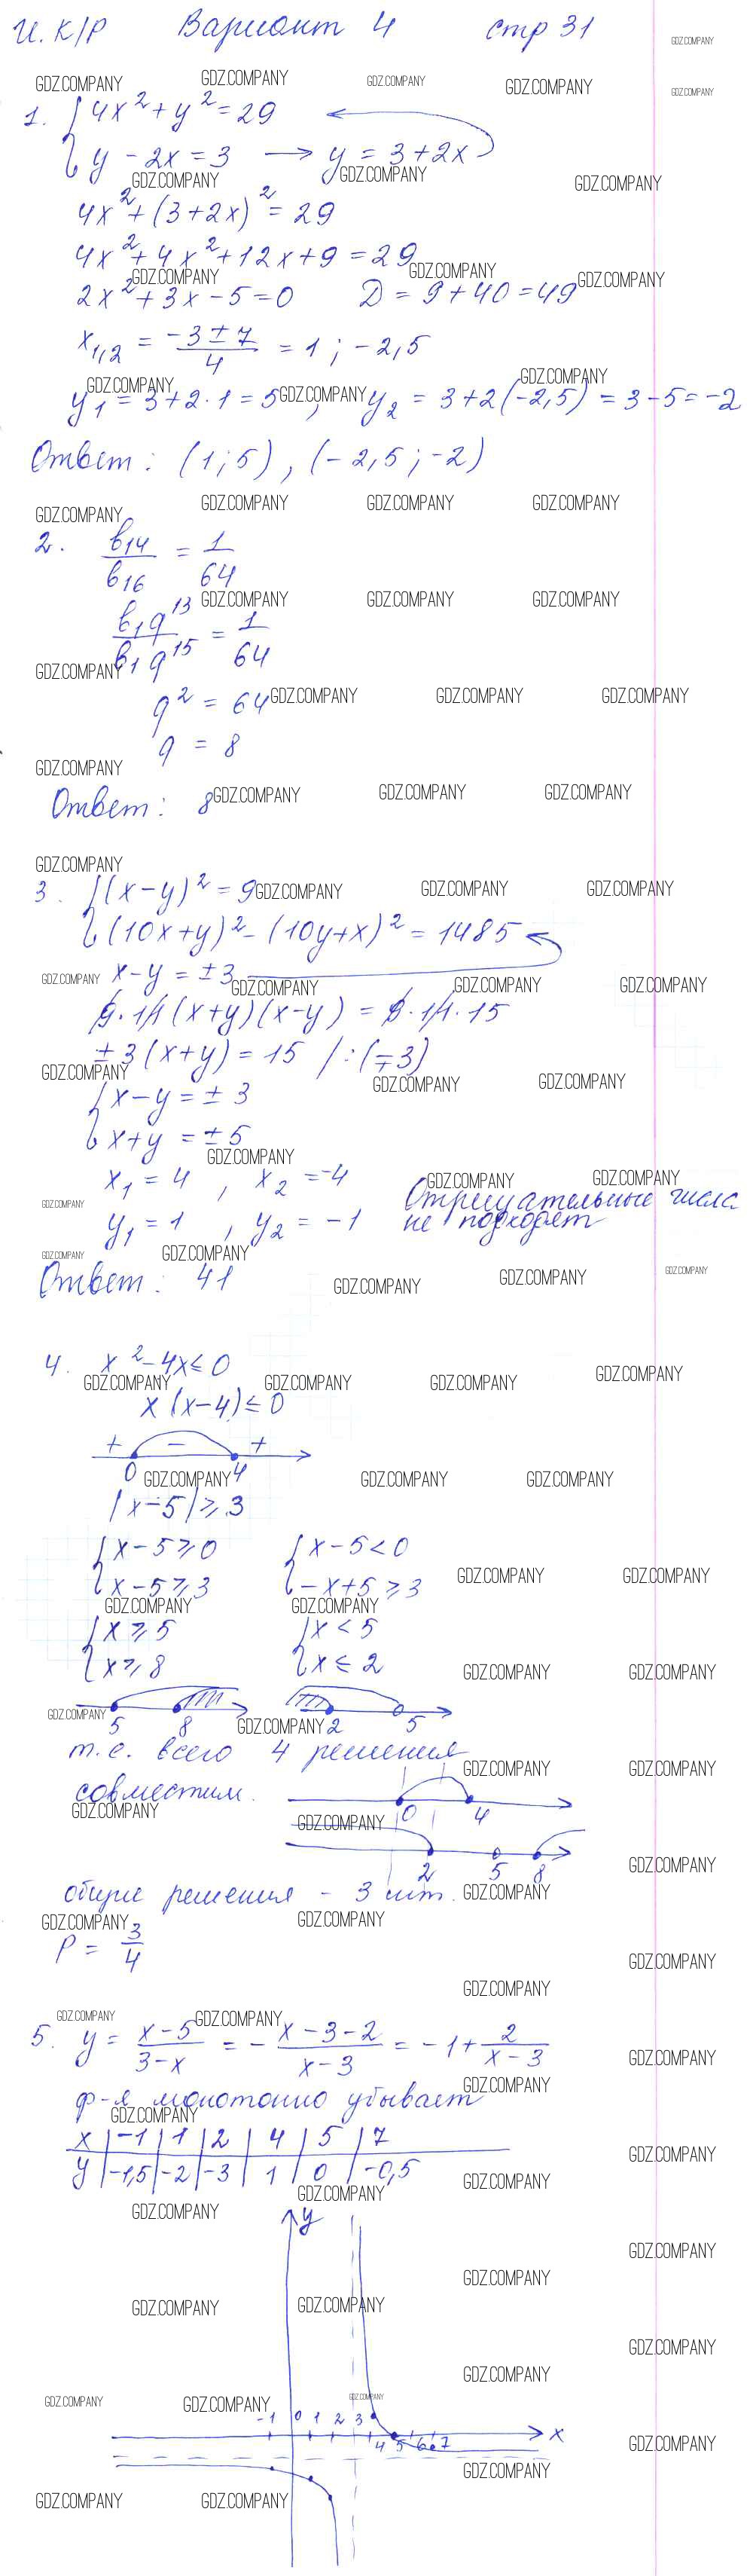 И. К/Р Вариант 4 стр 31
1. { 4x² + y² = 29
y - 2x = 3 → y = 3 + 2x
4x² + (3 + 2x)² = 29
4x² + 4x² + 12x + 9 = 29
2x² + 3x - 5 = 0 D = 9 + 40 = 49
x₁,₂ = (-3 ± 7)/4 = 1 ; -2,5
y₁ = 3 + 2·1 = 5 , y₂ = 3 + 2(-2,5) = 3 - 5 = -2
Ответ: (1; 5), (-2,5; -2)
2. b₁₄/b₁₆ = 1/64
b₁q¹³/b₁q¹⁵ = 1/64
q² = 64
q = 8
Ответ: 8
3. { (x-y)² = 9
(10x+y)² - (10y+x)² = 1485
x-y = ±3
9·11(x+y)(x-y) = 9·11·15
±3(x+y) = 15 /:(∓3)
{ x-y = ±3
x+y = ±5
x₁ = 4 , x₂ = -4 Отрицательные числа
y₁ = 1 , y₂ = -1 не подходят
Ответ: 41
4. x² - 4x ≤ 0
x(x-4) ≤ 0
+ - +
0 4
|x-5| ≥ 3
{ x-5 ≥ 0 { x-5 < 0
x-5 ≥ 3 -x+5 ≥ 3
{ x ≥ 5 { x < 5
x ≥ 8 x ≤ 2
5 8 2 5
т.е. всего 4 решения
совместим.
0 4
2 5 8
общие решения - 3 шт.
P = 3/4
5. y = (x-5)/(3-x) = -(x-3-2)/(x-3) = -1 + 2/(x-3)
ф-я монотонно убывает
x | -1 | 1 | 2 | 4 | 5 | 7
y | -1,5 | -2 | -3 | 1 | 0 | -0,5
y
-1 0 1 2 3 x
4 5 6 7
GDZ.COMPANY